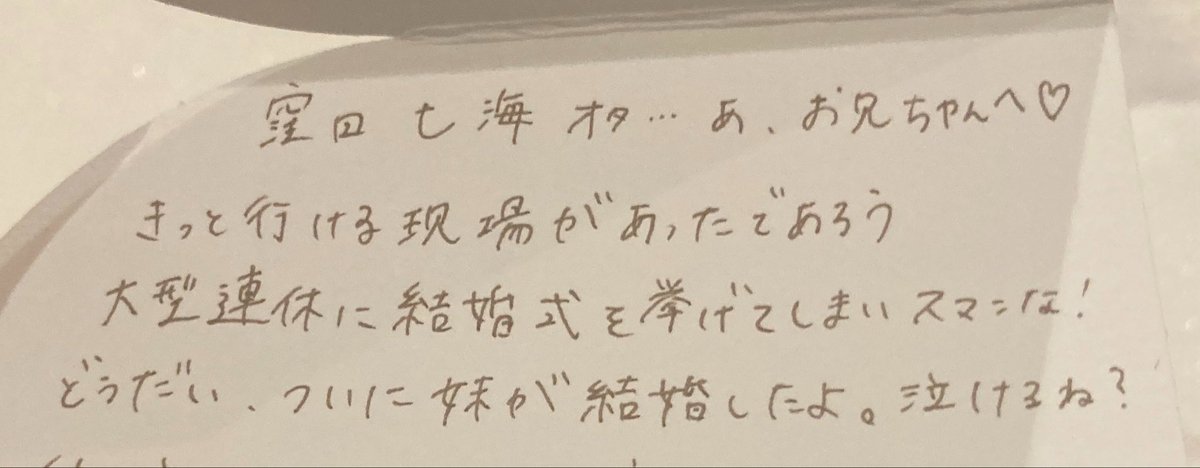 窪田七海オタ…あ、お兄ちゃんへ♡
きっと行ける現場があったであろう
大型連休に結婚式を挙げてしまいスマンな!
どうだい、ついに妹が結婚したよ。泣けるね?